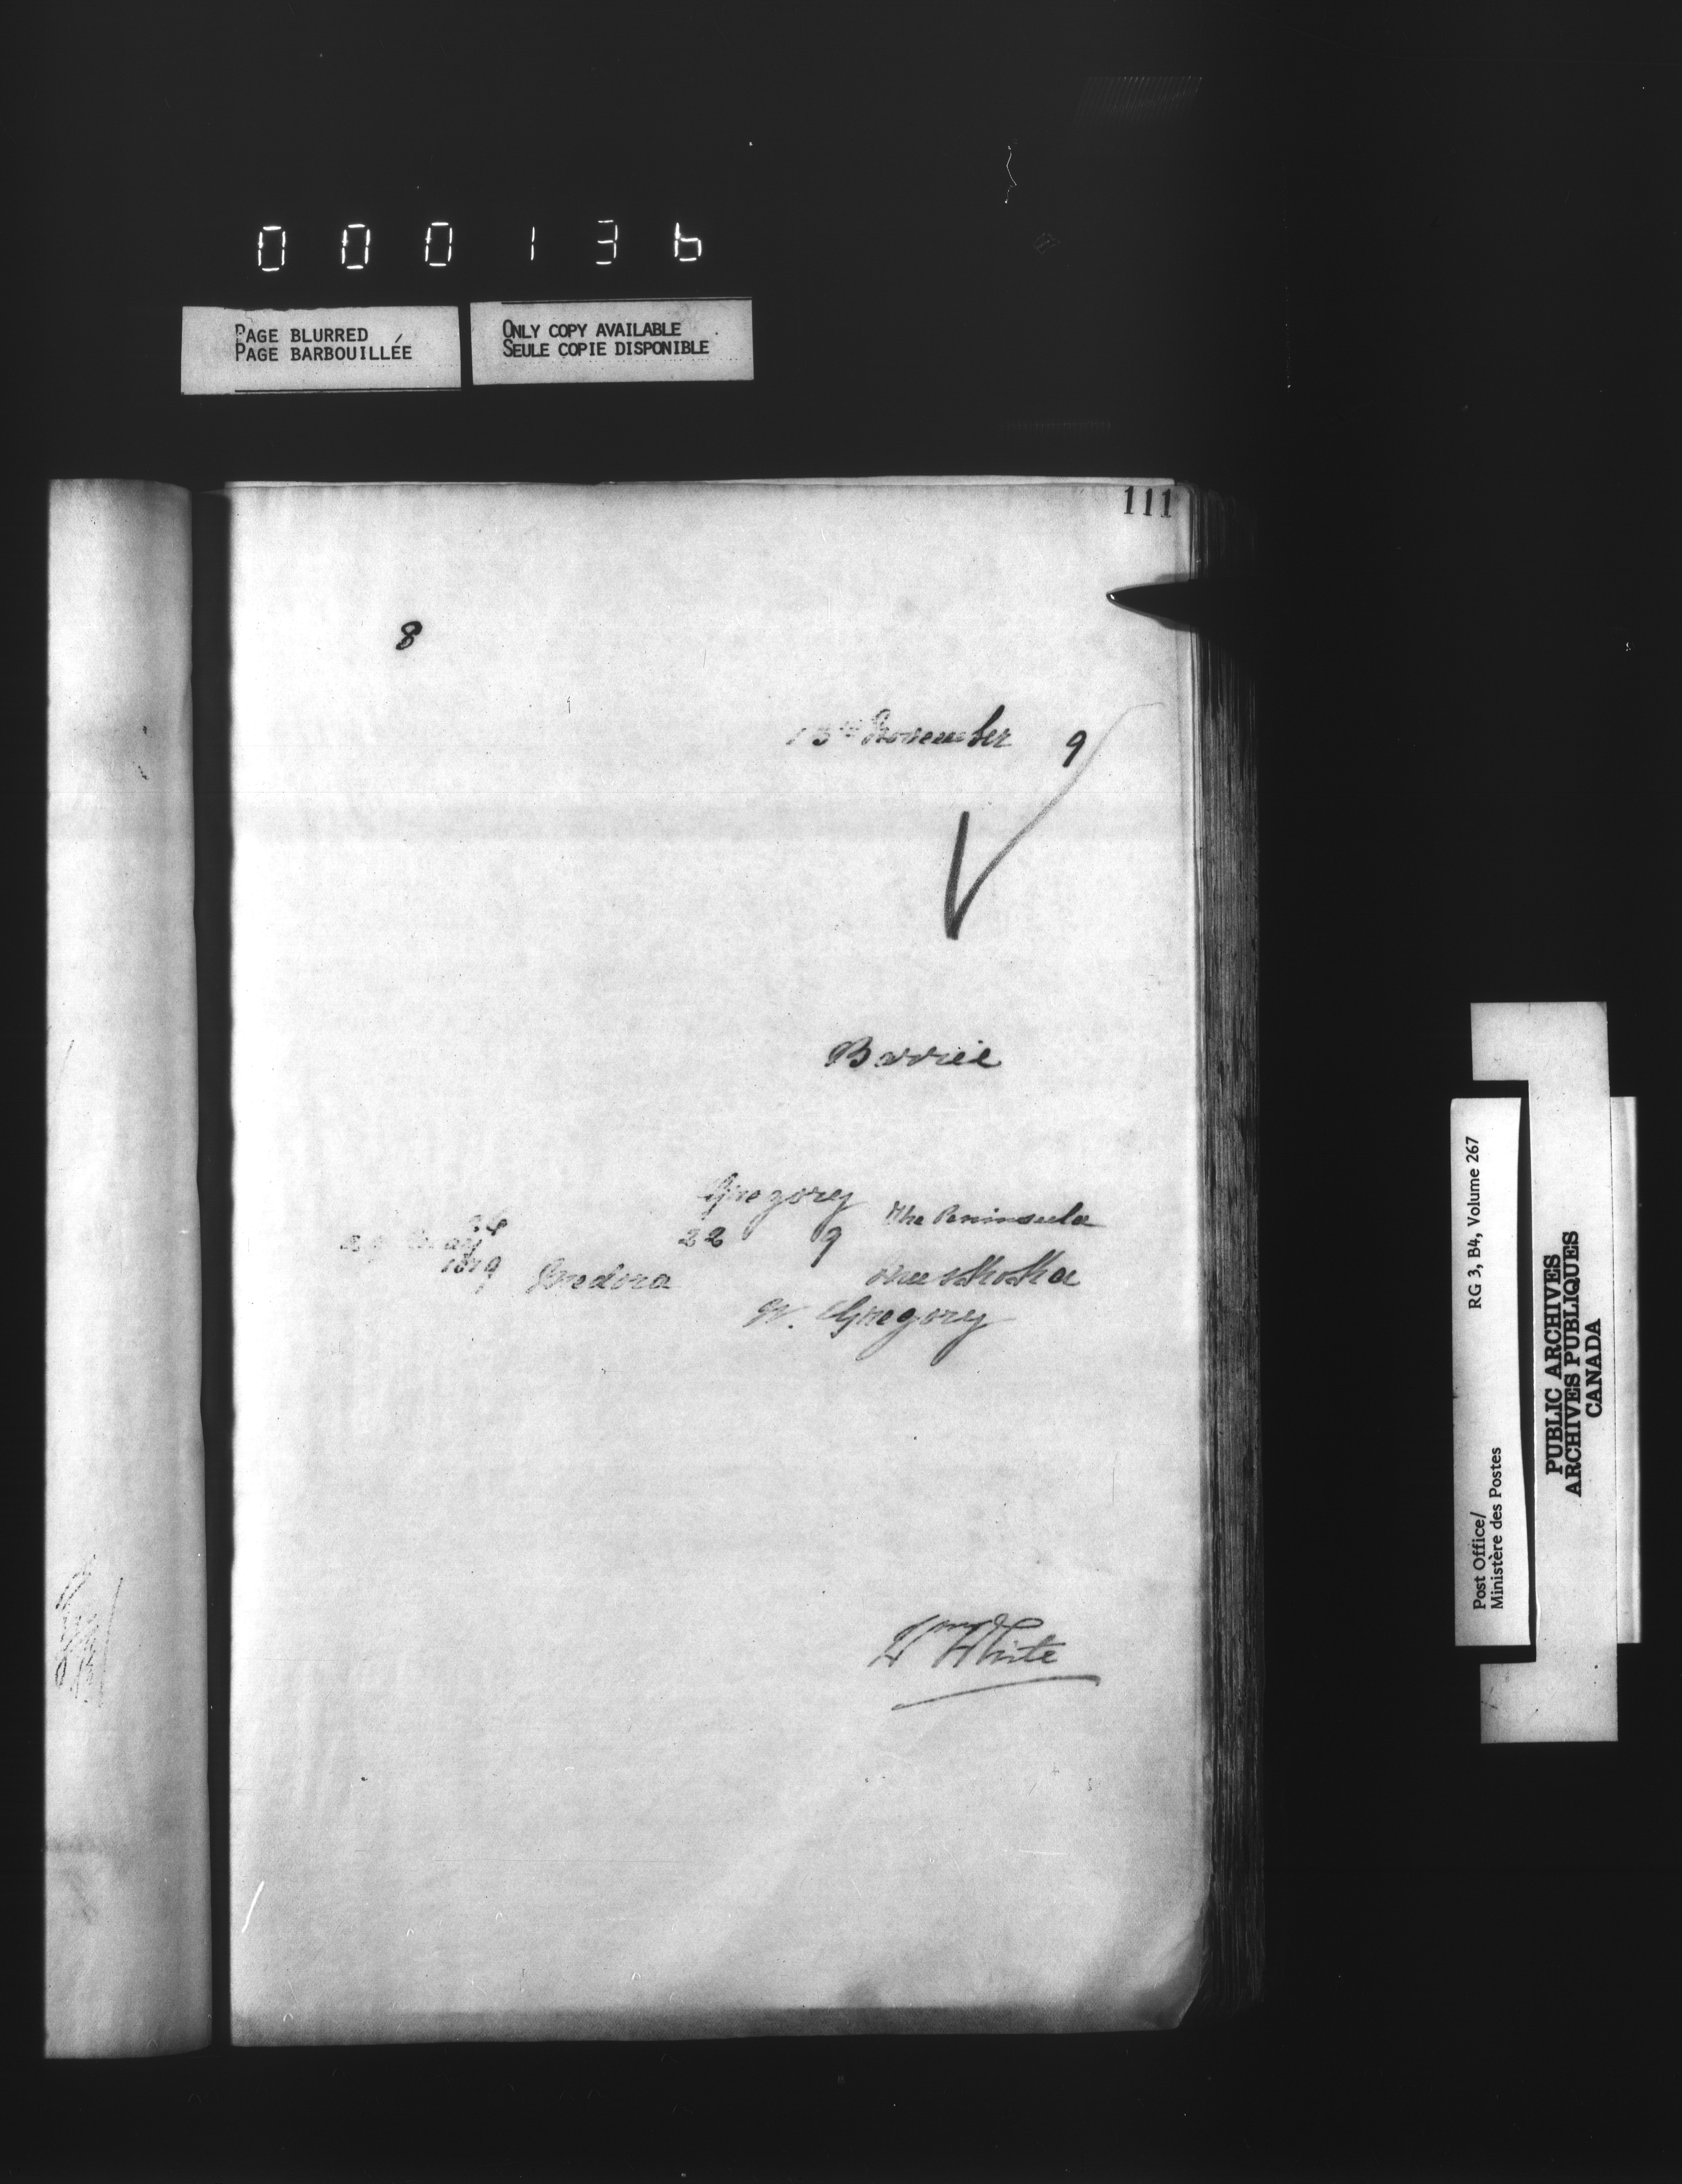 000136
PAGE BLURRED
PAGE BARBOUILLÉE
ONLY COPY AVAILABLE
SEULE COPIE DISPONIBLE
111
8
13th November 9
Barrie
Gregory The Peninsula
22 9
1879 Medora Muskoka
W. Gregory
Wm White
RG 3, B4, Volume 267
Post Office/
Ministère des Postes
PUBLIC ARCHIVES
ARCHIVES PUBLIQUES
CANADA